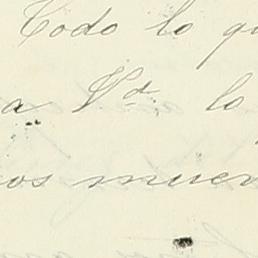 Todo lo qu
a Vd. lo
os muer